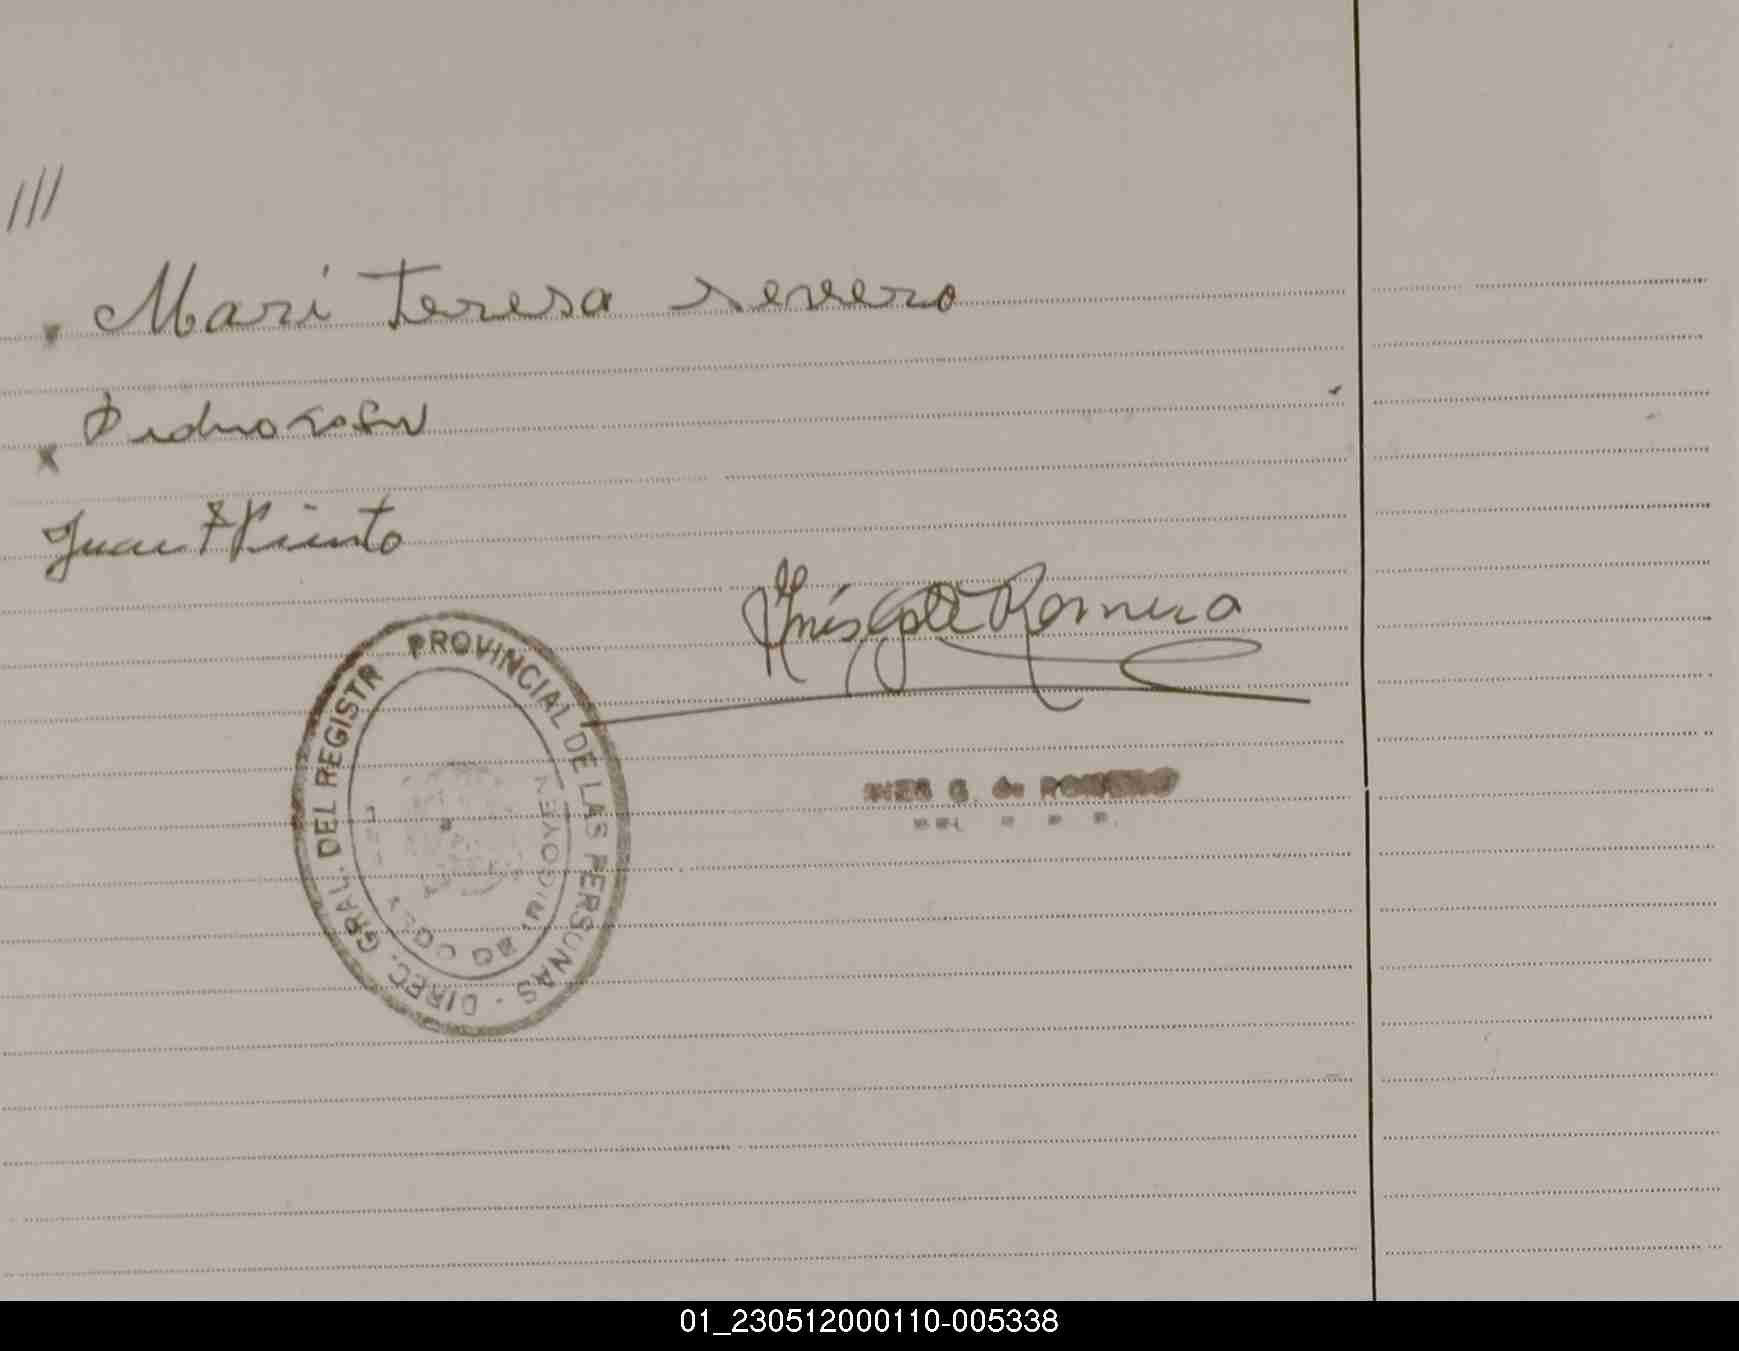 ///
x Mari Teresa severo
x Pedro
Juan Pinto
Inés G de Romero
DIREC. GRAL. DEL REGISTR PROVINCIAL DE LAS PERSONAS -
IRIGOYEN
INES G. de ROMERO
01_230512000110-005338